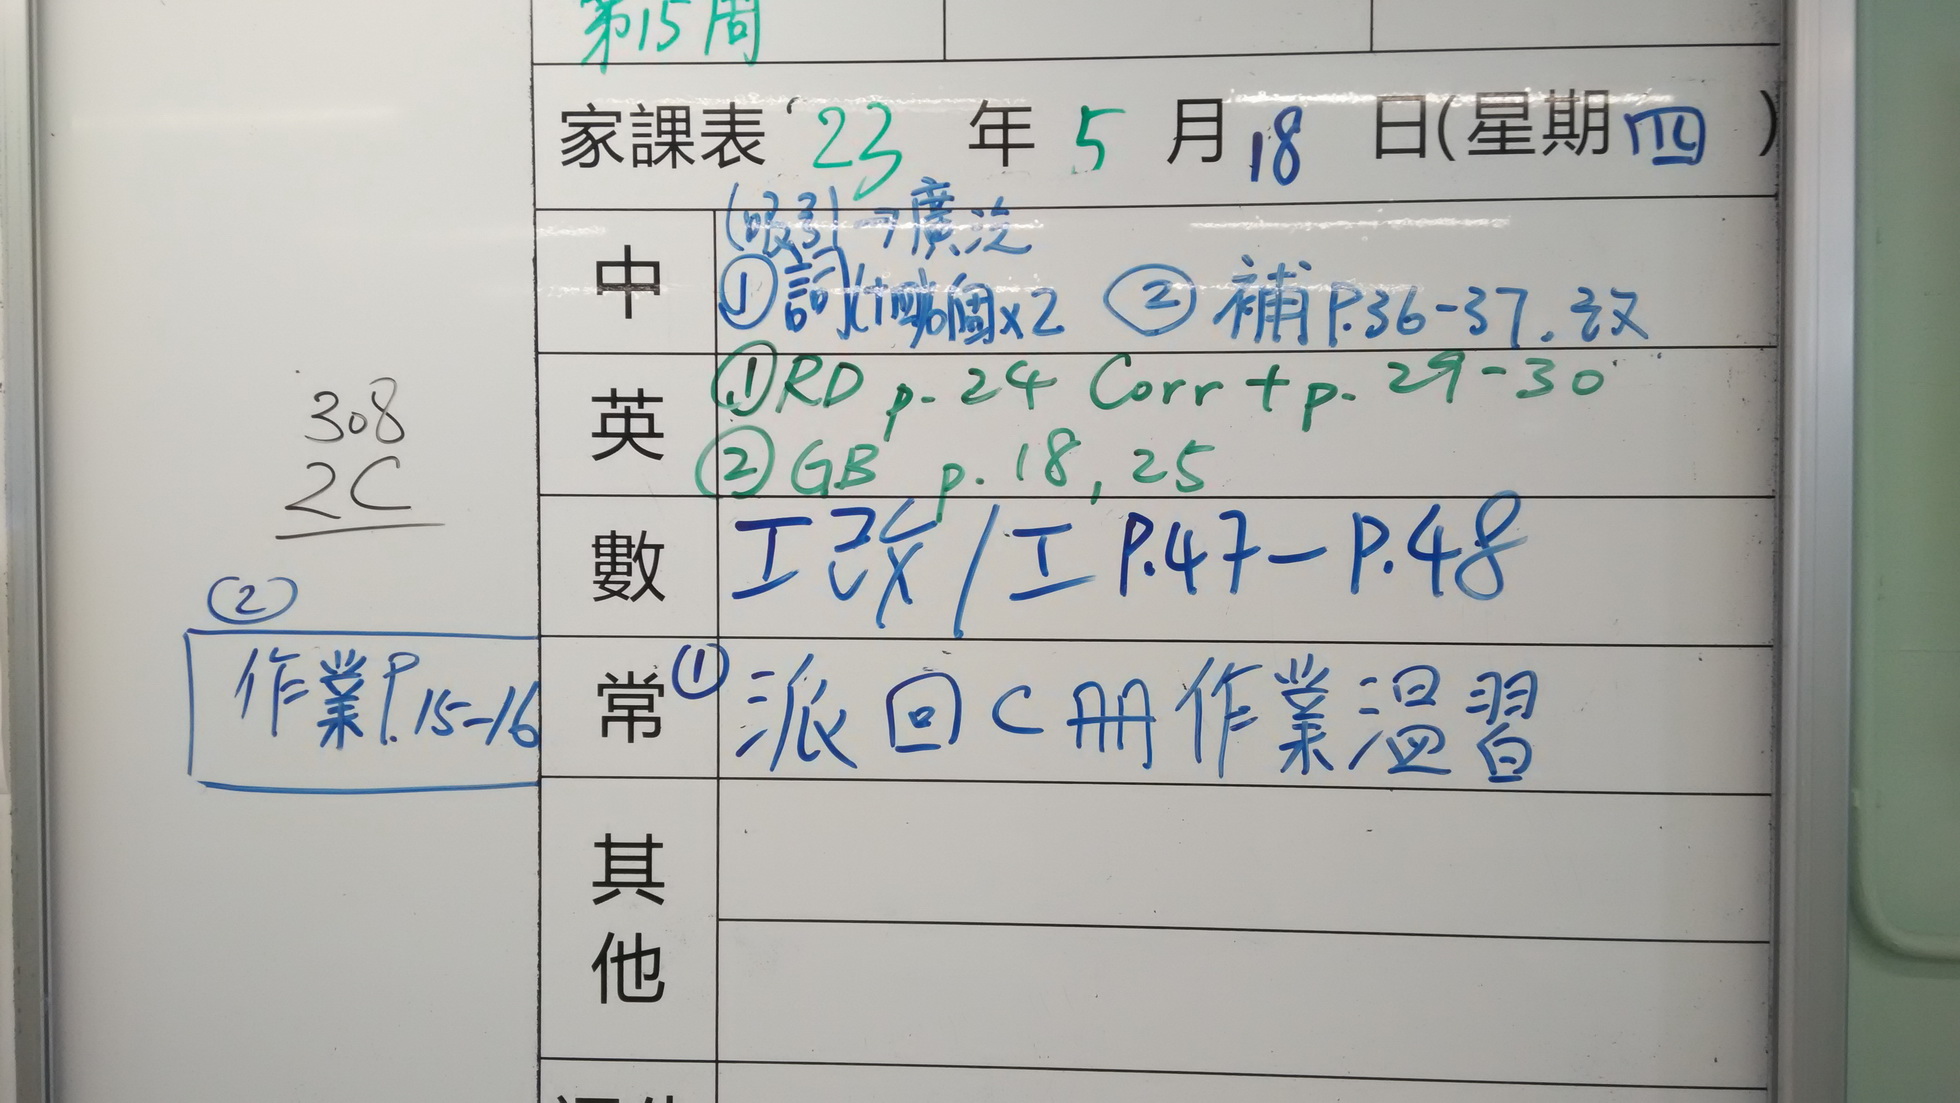 第15周
家課表 '23 年 5 月 18 日(星期四)
中
(吸引→廣泛
①詞(十 6個x2 ②補P.36-37.改
英
①RD p.24 Corr + p. 29-30
②GB p.18, 25
數
工改/工P.47-P.48
常
①派回C冊作業溫習
308
2C
②
作業P.15-16
其他